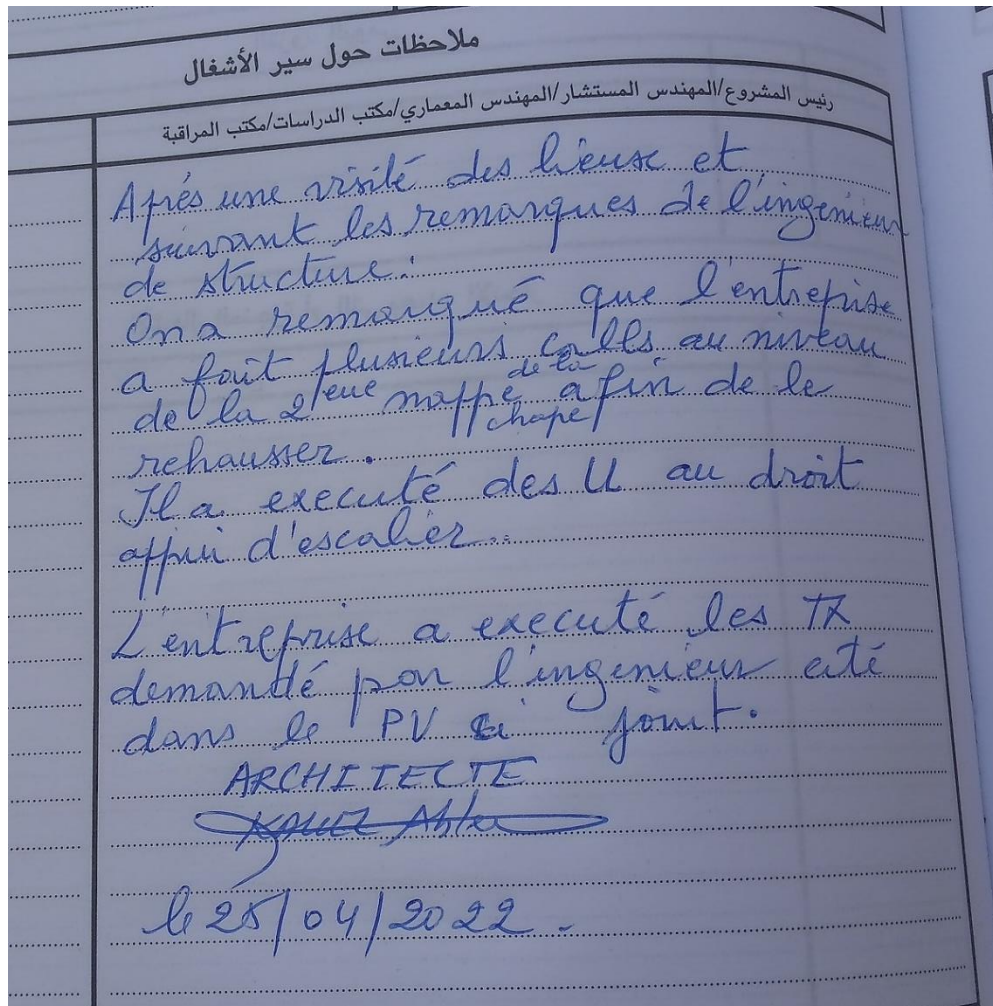 ملاحظات حول سير الأشغال
رئيس المشروع/المهندس المستشار/المهندس المعماري/مكتب الدراسات/مكتب المراقبة
Aprés une visité des lieux et
suivant les remarques de l'ingenieur
de structure:
On a remarqué que l'entreprise
a fait plusieurs calls au niveau
de la 2
nappe de la chape afin de le
rehausser.
Il a executé des U au droit
appui d'escalier..
L'entreprise a executé les TX
demandé par l'ingenieur cité
dans le PV ci joint.
ARCHITECTE
le 25/04/2022.